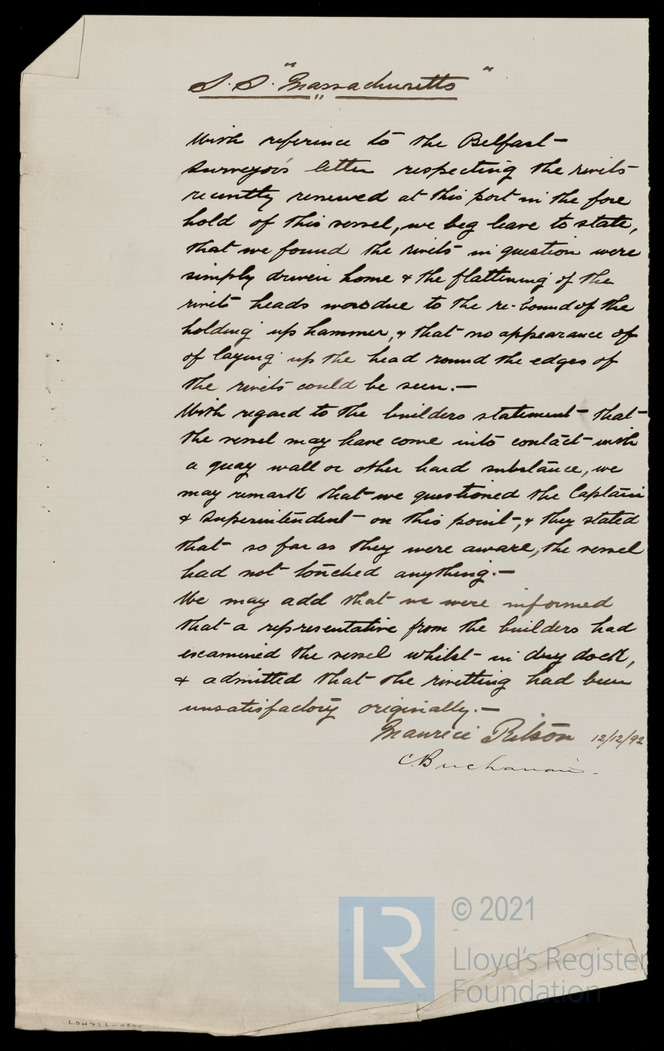 S.S. "Massachusetts"
With reference to the Belfast
Surveyors letter respecting the rivets
recently renewed at this port in the fore
hold of this vessel, we beg leave to state,
that we found the rivets in question were
simply driven home & the flattening of the
rivet heads was due to the re-bound of the
holding up hammer, & that no appearance of
of laying up the head round the edges of
the rivets could be seen.—
With regard to the builders statement that
the vessel may have come into contact with
a quay wall or other hard substance, we
may remark that we questioned the Captain
& Superintendent on this point, & they stated
that so far as they were aware, the vessel
had not touched anything.—
We may add that we were informed
that a representative from the builders had
examined the vessel whilst in dry dock,
& admitted that the rivetting had been
unsatisfactory originally.—
Maurice Ritson 12/12/92
C. Buchanan.
LR © 2021
Lloyd's Register
Foundation